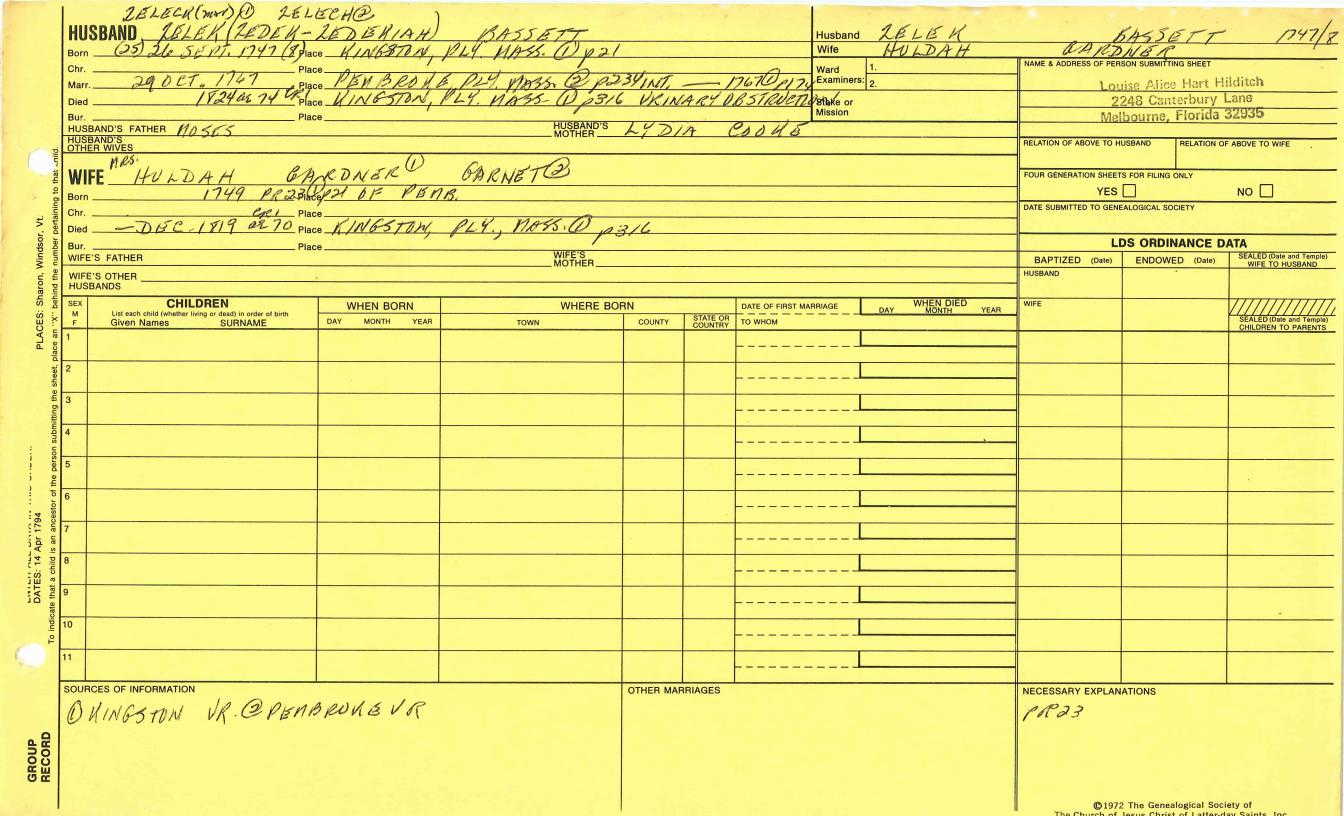 ZELECK (mar) ① ZELECH ②
HUSBAND ZELEK (ZEDEK-ZEDEKIAH) BASSETT
Born (25) 26 SEPT. 1747 (8) Place KINGSTON, PLY. MASS. ① p21
Chr. Place
Marr. 29 OCT. 1767 Place PEMBROKE PLY. MASS. ② p234 INT. — 1767 ① p174
Died 1824 ae 74 CR1 Place KINGSTON, PLY. MASS. ① p316 URINARY OBSTRUCTION
Bur. Place
HUSBAND'S FATHER MOSES HUSBAND'S MOTHER LYDIA COOKE
HUSBAND'S OTHER WIVES
MRS.
WIFE HULDAH GARDNER ① GARNET ②
Born 1749 PR23 ① Place p21 OF PEMB.
Chr. Place
Died — DEC. 1819 CR1 ae 70 Place KINGSTON, PLY., MASS. ① p316
Bur. Place
WIFE'S FATHER WIFE'S MOTHER
WIFE'S OTHER HUSBANDS
Husband ZELEK BASSETT 1747/8
Wife HULDAH GARDNER
Ward Examiners: 1.
2.
Stake or Mission
NAME & ADDRESS OF PERSON SUBMITTING SHEET
Louise Alice Hart Hilditch
2248 Canterbury Lane
Melbourne, Florida 32935
RELATION OF ABOVE TO HUSBAND RELATION OF ABOVE TO WIFE
FOUR GENERATION SHEETS FOR FILING ONLY
YES NO
DATE SUBMITTED TO GENEALOGICAL SOCIETY
LDS ORDINANCE DATA
BAPTIZED (Date) ENDOWED (Date) SEALED (Date and Temple) WIFE TO HUSBAND
HUSBAND
WIFE
SEALED (Date and Temple) CHILDREN TO PARENTS
SEX M F
CHILDREN
List each child (whether living or dead) in order of birth
Given Names SURNAME
WHEN BORN
DAY MONTH YEAR
WHERE BORN
TOWN COUNTY STATE OR COUNTRY
DATE OF FIRST MARRIAGE
TO WHOM
WHEN DIED
DAY MONTH YEAR
1
2
3
4
5
6
7
8
9
10
11
SOURCES OF INFORMATION
① KINGSTON VR. ② PEMBROKE VR
OTHER MARRIAGES
NECESSARY EXPLANATIONS
PR23
©1972 The Genealogical Society of
The Church of Jesus Christ of Latter-day Saints, Inc.
PLACES: Sharon, Windsor, Vt.
DATES: 14 Apr 1794
To indicate that a child is an ancestor of the person submitting the sheet, place an "X" behind the number pertaining to that child.
GROUP RECORD